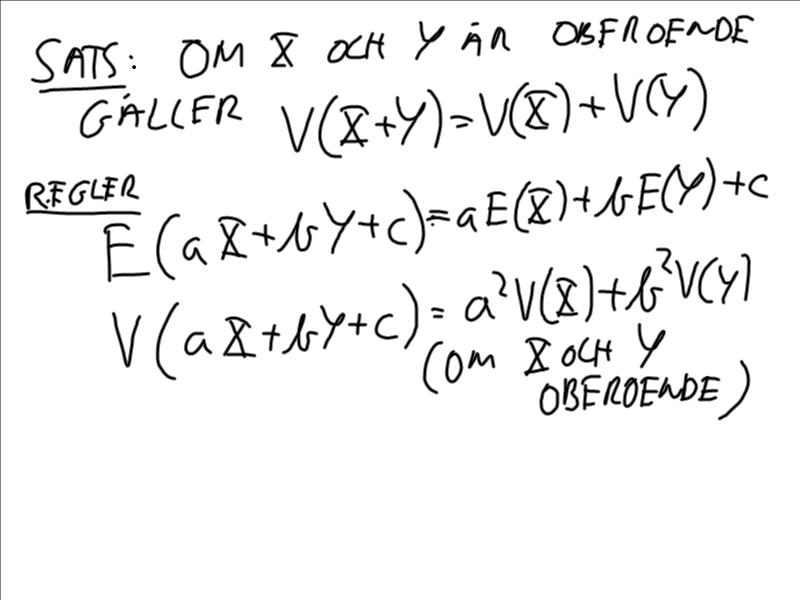 SATS: OM X OCH Y ÄR OBEROENDE
GÄLLER V(X+Y)=V(X)+V(Y)
REGLER
E(aX+bY+c)=aE(X)+bE(Y)+c
V(aX+bY+c)=a²V(X)+b²V(Y)
(OM X OCH Y
OBEROENDE)